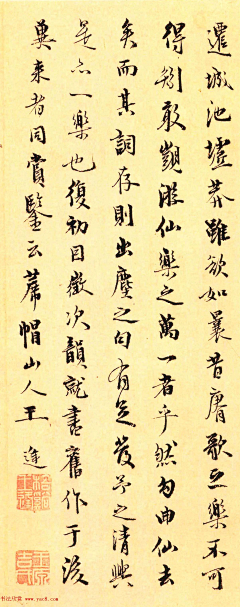 遷城池墟莽雖欲如曩昔賡歌之樂不可
得矧敢觊遊仙樂之萬一者乎然勾曲仙去
矣而其詞存則出塵之句有足發予之清興
是亦一樂也復初目徵次韻就書舊作于後
冀來者同賞鑒云蓆帽山人王逢